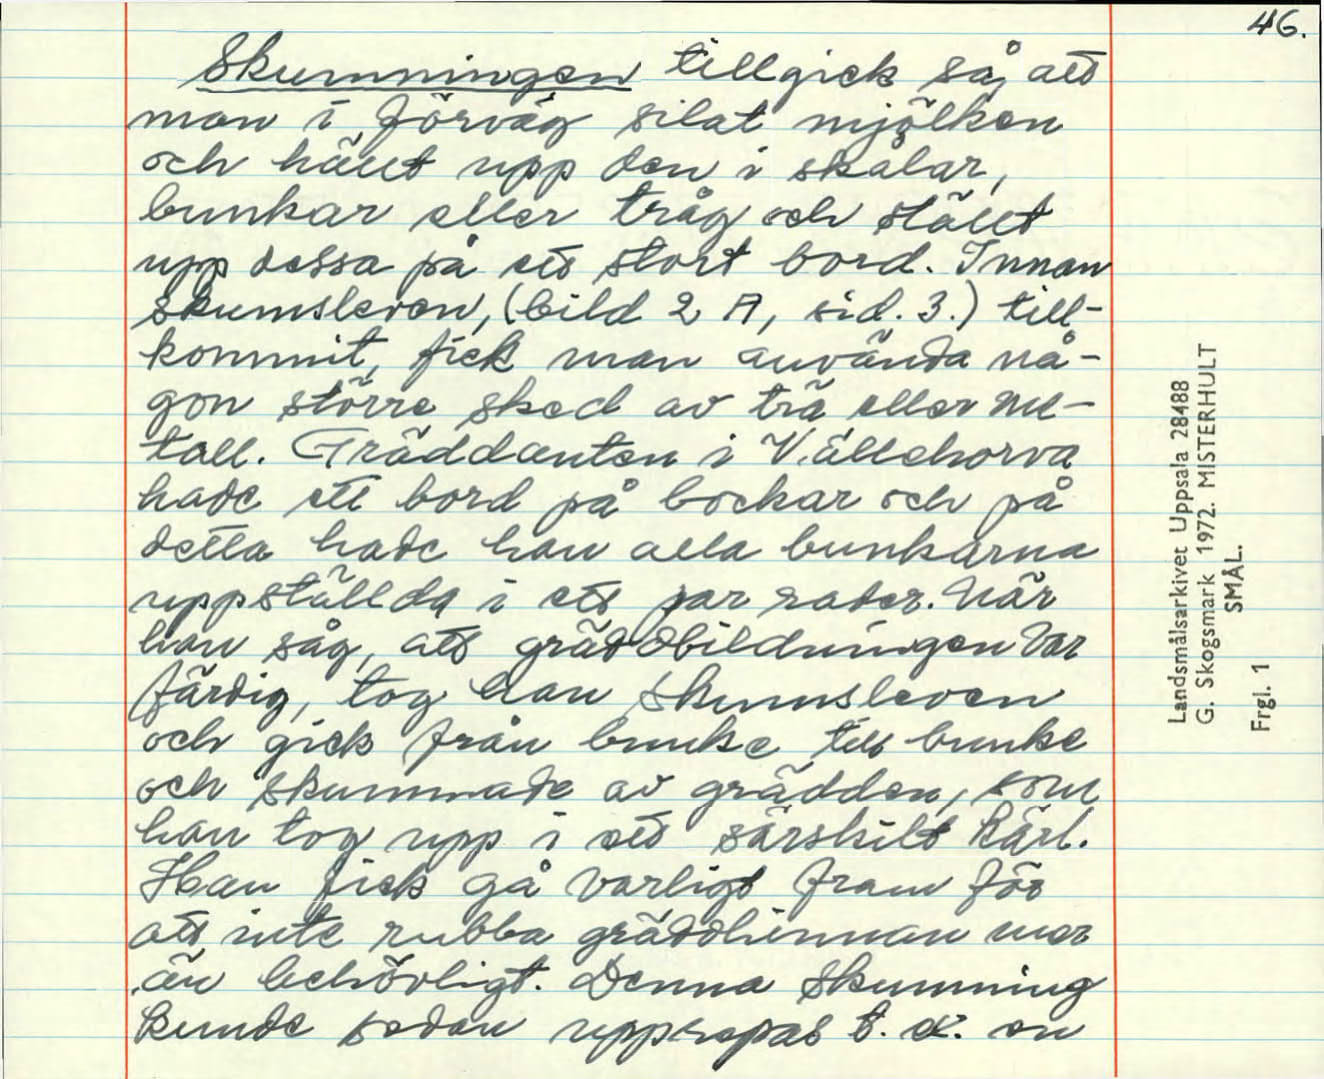 46.
Skumningen tillgick så, att
man i förväg silat mjölken
och hällt upp den i skålar,
bunkar eller tråg och ställt
upp dessa på ett stort bord. Innan
skumsleven, (bild 2 A, sid. 3.) till-
kommit, fick man använda nå-
gon större sked av trä eller me-
tall. Gräddanten i Vällehorva
hade ett bord på bockar och på
detta hade han alla bunkarna
uppställda i ett par rader. När
han såg, att gräddbildningen var
färdig, tog han skumsleven
och gick från bunke till bunke
och skummade av grädden, som
han tog upp i ett särskilt kärl.
Han fick gå varligt fram för
att inte rubba gräddhinnan mer
än behövligt. Denna skumning
kunde sedan upprepas t. ex. en
Landsmålsarkivet Uppsala 28488
G. Skogsmark 1972. MISTERHULT
SMÅL.
Frgl. 1